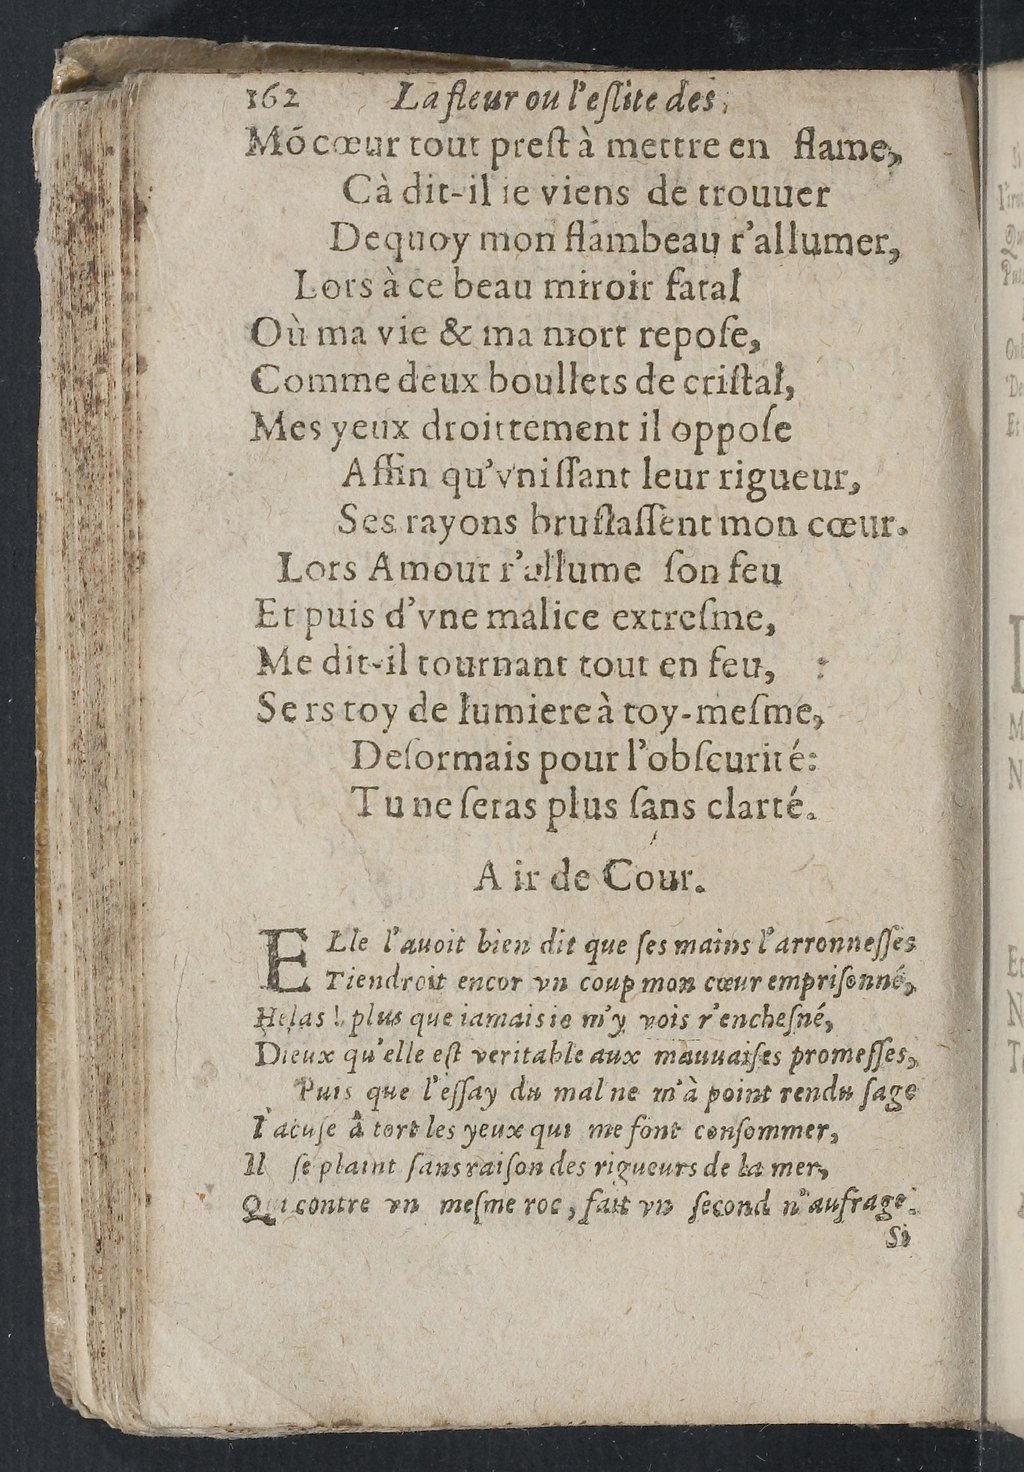 162 La fleur ou l'eſlite des,
Mó cœur tout preſt à mettre en flame,
Cà dit-il ie viens de trouuer
Dequoy mon flambeau r'allumer,
Lors à ce beau miroir fatal
Où ma vie & ma mort repoſe,
Comme deux boullets de criſtal,
Mes yeux droittement il oppoſe
Affin qu'vniſſant leur rigueur,
Ses rayons bruſlaſſent mon cœur.
Lors Amour r'allume ſon feu
Et puis d'vne malice extreſme,
Me dit-il tournant tout en feu,
Sers toy de lumiere à toy-meſme,
Deſormais pour l'obſcurité:
Tu ne ſeras plus ſans clarté.
Air de Cour.
ELle l'auoit bien dit que ſes mains l'arronneſſes
Tiendroit encor vn coup mon cœur empriſonné,
Helas! plus que iamais ie m'y vois r'encheſné,
Dieux qu'elle eſt veritable aux mauuaiſes promeſſes,
Puis que l'eſſay du mal ne m'à point rendu ſage
I'acuſe à tort les yeux qui me font conſommer,
Il ſe plaint ſans raiſon des rigueurs de la mer,
Qui contre vn meſme roc, fait vn ſecond naufrage.
Si